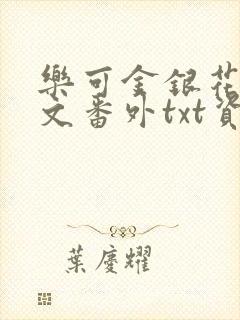 樂可金銀花
文番外txt資
葉慶耀